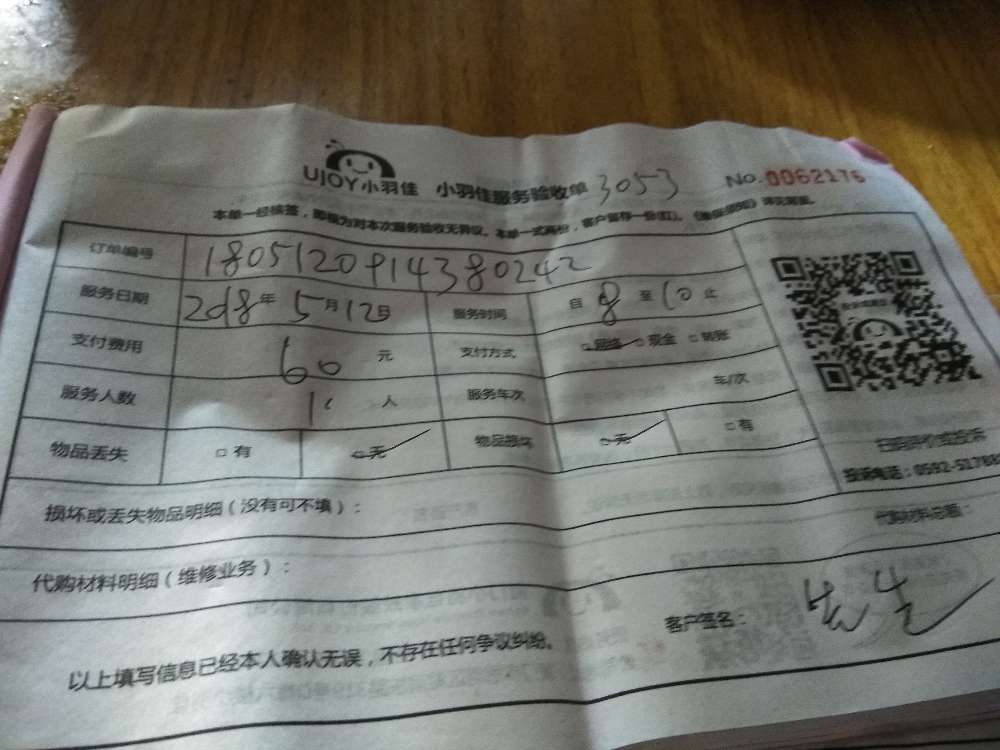 UJOY小羽佳 小羽佳服务验收单 3053 No.0062176
本单一经续签，即视为对本次服务验收无异议。本单一式两份，客户留存一份(红)。
订单编号 1805120914380242
服务日期 2018年5月12日 服务时间 自8至10止
支付费用 60元 支付方式 □网络 □现金 □转账
服务人数 1人 服务车次 车/次
物品丢失 □有 □无 物品损坏 □无 □有
扫码评价或投诉
投诉电话：0592-51788
损坏或丢失物品明细（没有可不填）：
代购材料总额：
代购材料明细（维修业务）：
客户签名： 先生
以上填写信息已经本人确认无误，不存在任何争议纠纷。